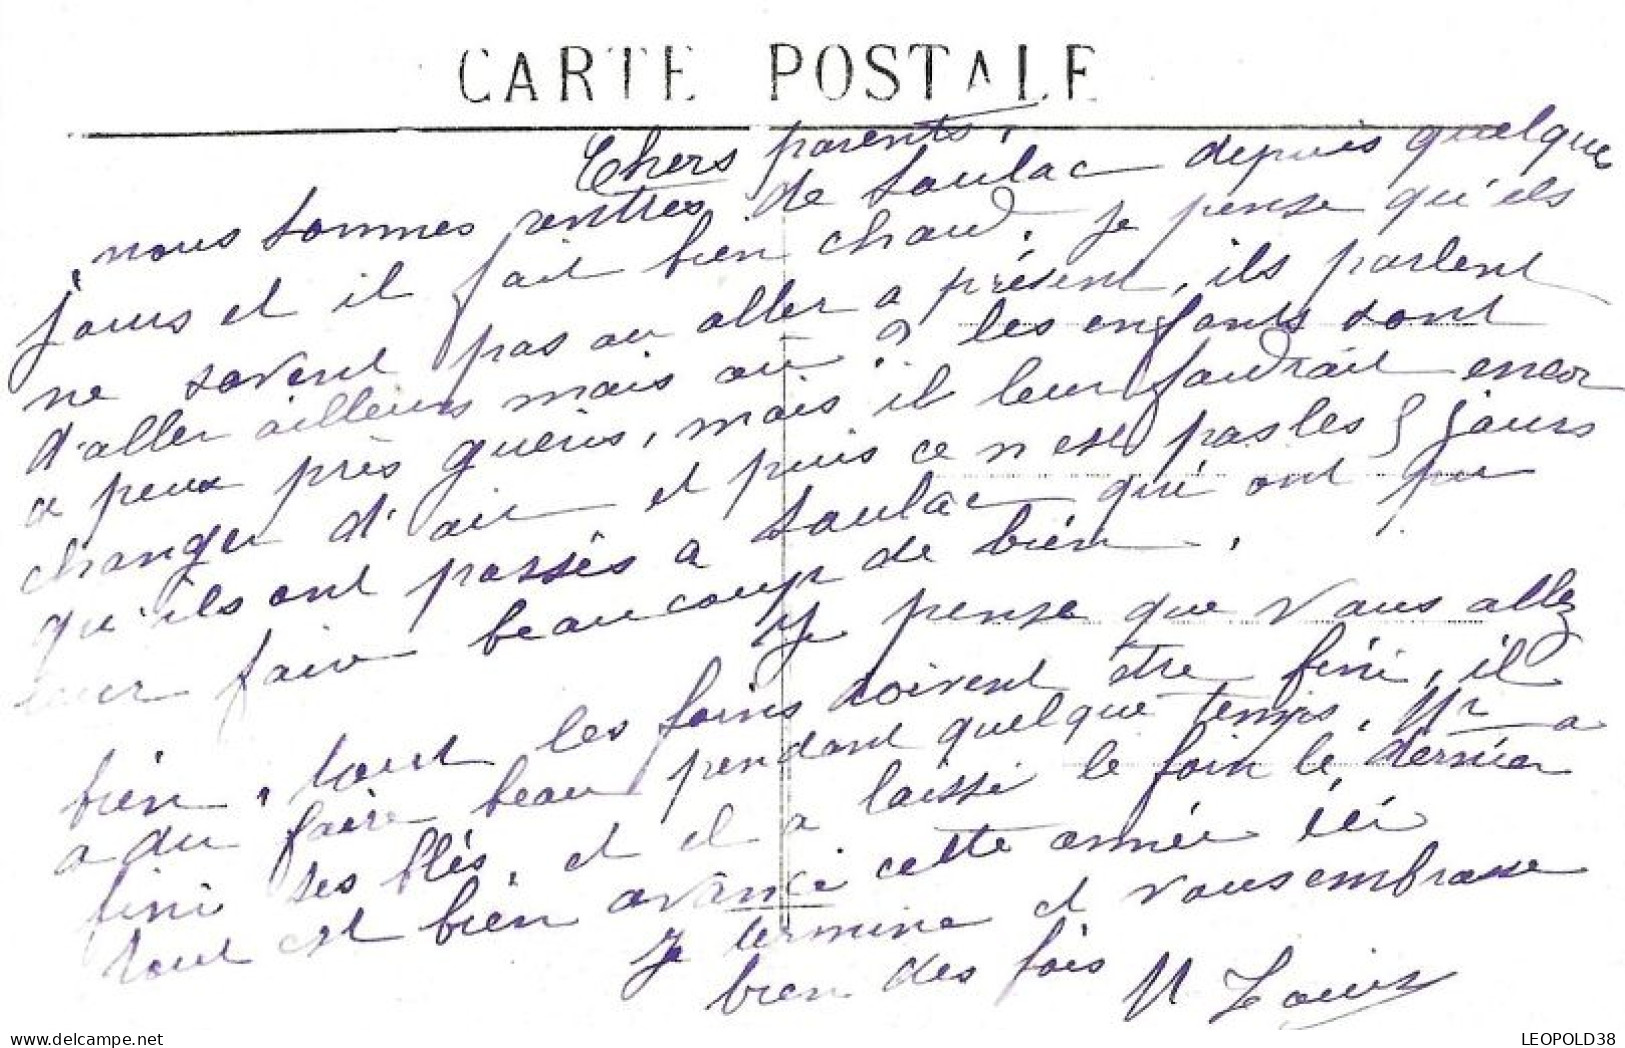 CARTE POSTALE
Chers parents,
nous sommes rentrés de Soulac depuis quelques
jours et il fait bien chaud, je pense qu'ils
ne savent pas ou aller a présent, ils parlent
d'aller ailleurs mais où ? les enfants sont
a peux près guéris, mais il leur faudrait encor
changer d'air et puis ce n'est pas les 8 jours
qu'ils ont passés a Soulac qui ont pu
leur faire beaucoup de bien.
Je pense que vous allez
bien, tout les foins doivent être fini, il
a du faire beau pendant quelque temps. Mr a
fini ses blés, et il a laissé le foin le dernier
tout est bien avancé cette année ici
Je termine et vous embrasse
bien des fois
M Louis
delcampe.net
LEOPOLD38